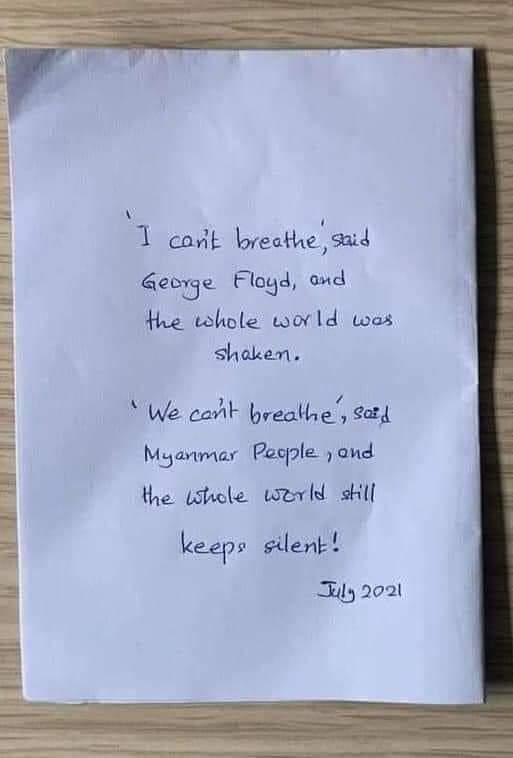 'I can't breathe', said
George Floyd, and
the whole world was
shaken.
'We can't breathe', said
Myanmar People, and
the whole world still
keeps silent!
July 2021